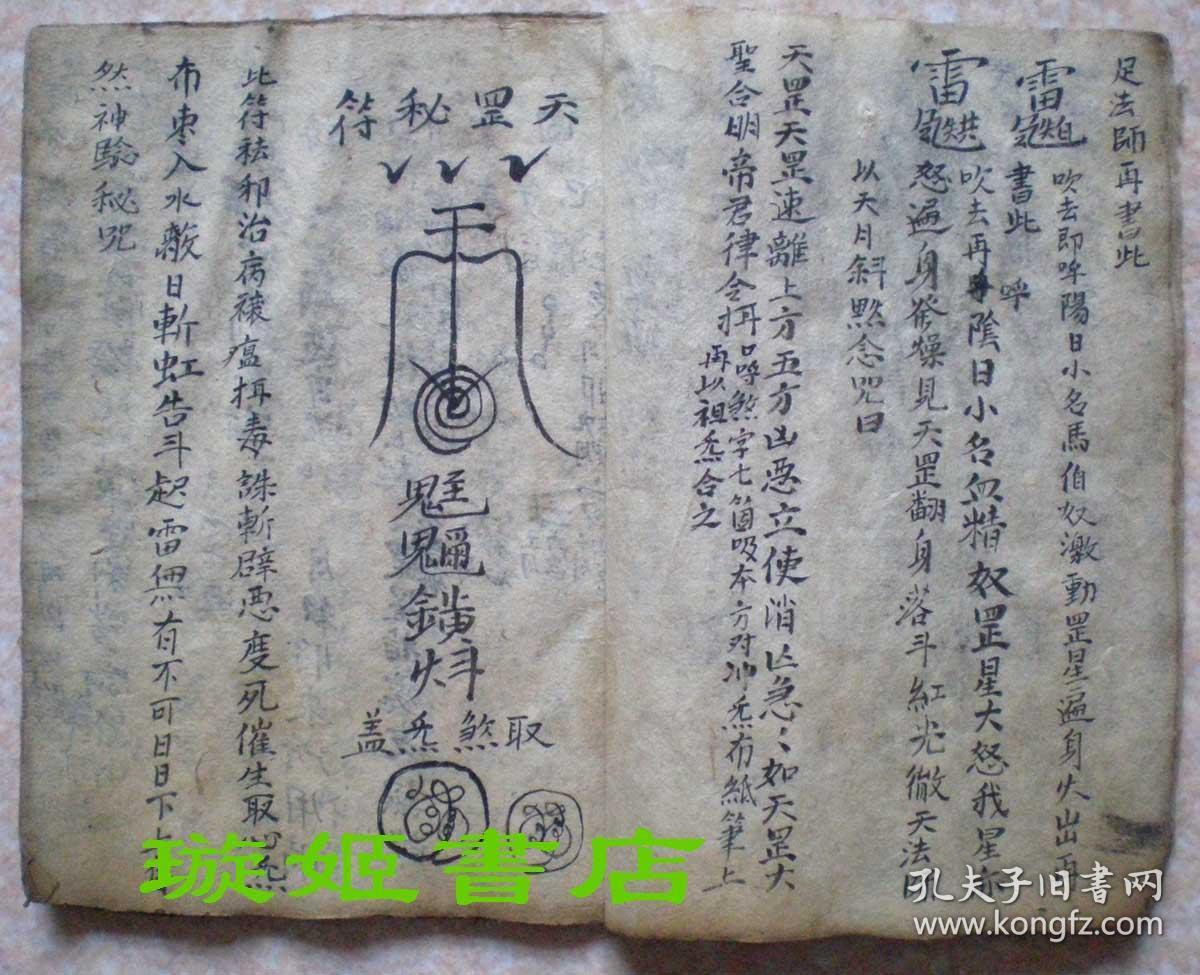 足法師再書此
雷
吹去即呼陽日小名馬伯奴激動罡星遍身火出再
書此 呼
雷
吹去再呼陰日小名血精奴罡星大怒我星
怒遍身發燥見天罡翻身落斗紅光徹天法
以天月斜默念咒曰
天罡天罡速離上方五方凶惡立使消亡急〻如天罡大
聖合明帝君律令
呼煞字七箇吸本方对冲炁布紙筆上
再以祖炁合之
天罡秘符
魁
取煞炁盖
此符祛邪治病禳瘟
毒誅斬辟惡度死催生取
布棗入水
日斬虹告斗起雷無有不可日日下
然神驗秘咒
璇姬書店
孔夫子旧书网
www.kongfz.com